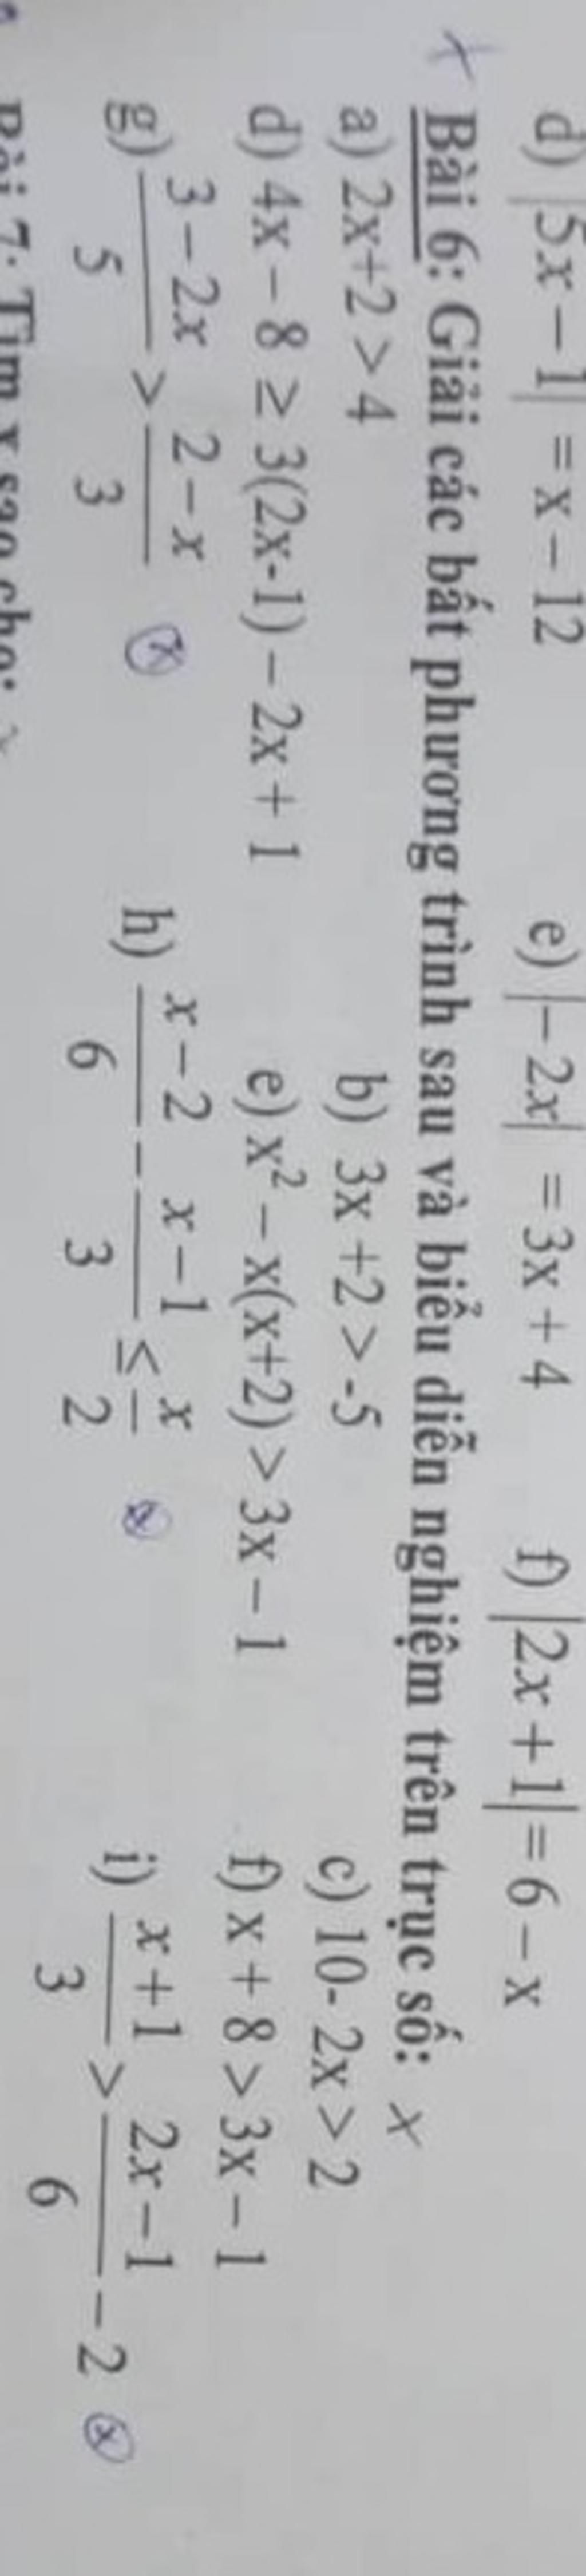 d) |5x − 1| = x − 12 e) |− 2x| = 3x + 4 f) |2x + 1| = 6 − x
x Bài 6: Giải các bất phương trình sau và biểu diễn nghiệm trên trục số: x
a) 2x+2 > 4 b) 3x +2 > -5 c) 10- 2x > 2
d) 4x − 8 ≥ 3(2x-1) − 2x + 1 e) x² − x(x+2) > 3x − 1 f) x + 8 > 3x − 1
g) (3 − 2x)/5 > (2 − x)/3 ⓧ h) (x − 2)/6 − (x − 1)/3 ≤ x/2 ⓧ i) (x + 1)/3 > (2x − 1)/6 − 2 ⓧ
Bài 7: Tìm x sao cho: